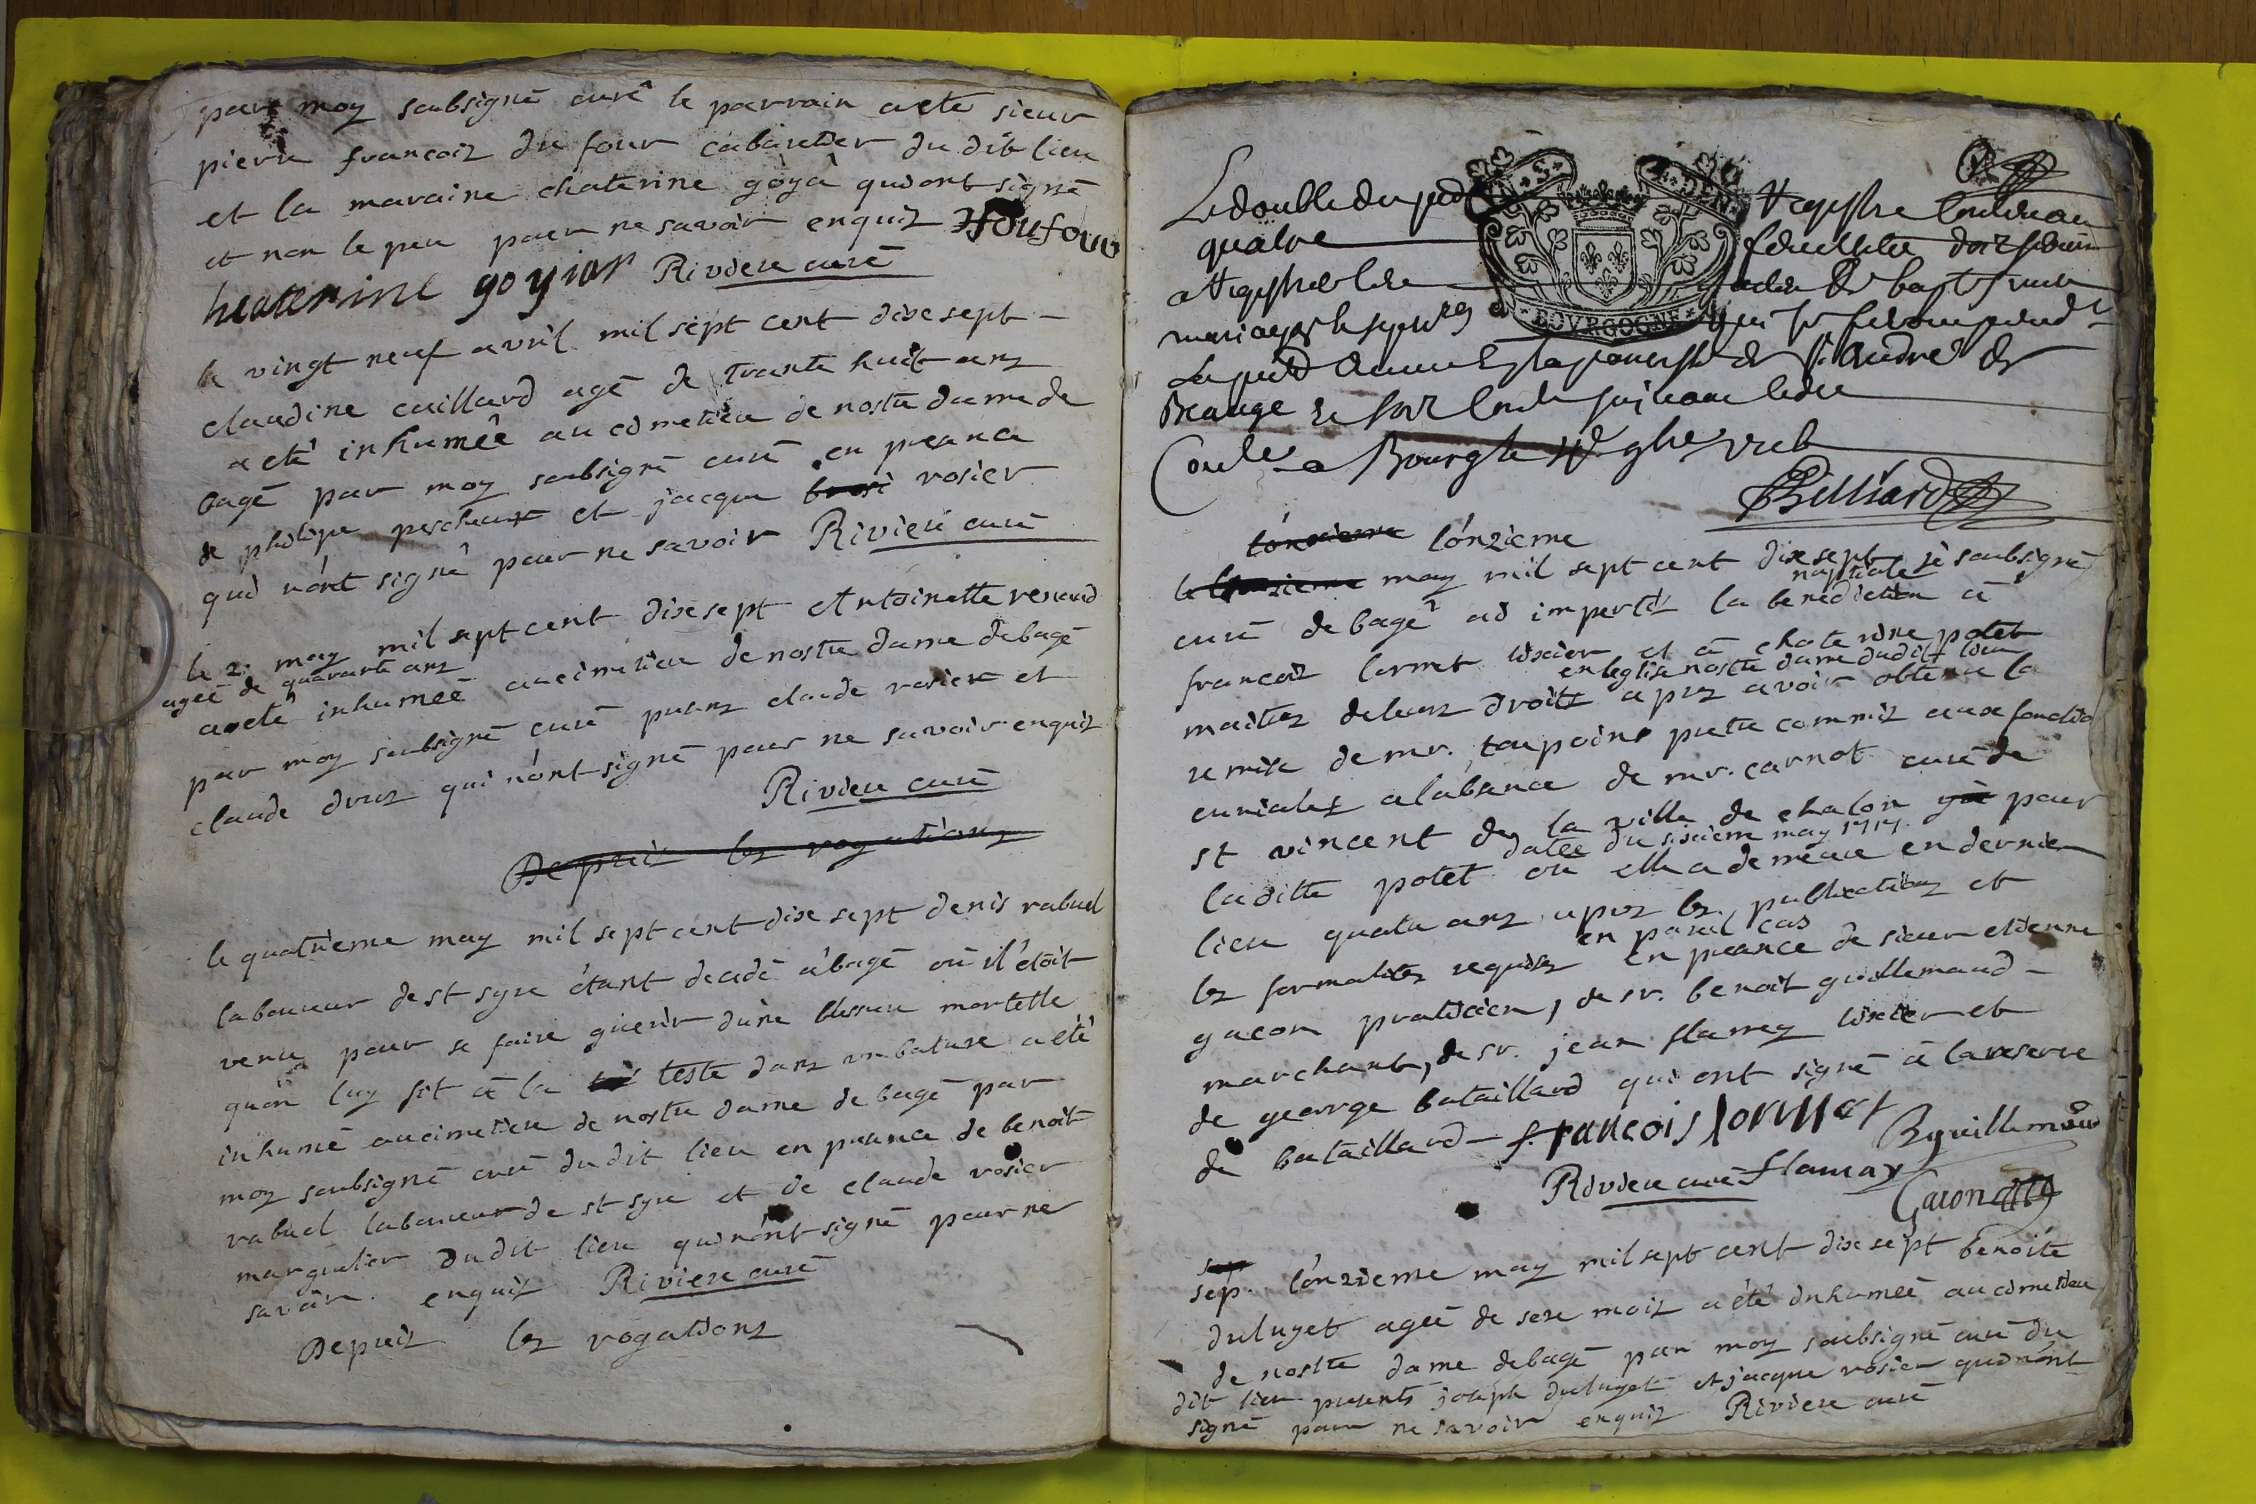 par moy soubsigné curé le parrain a eté sieur
pierre francois du four cabaretier du dit lieu
et la maraine chaterine goya qui ont signé
et non le peu pour ne savoir enquis dufour
heaterine goyiar Riviere curé
le vingt neuf avril mil sept cent dixe sept
claudine caillard agé de trante huit ans
a eté inhumêe au cimetieu de nostre dame de
bagé par moy soubsigné curé en preance
de philipe pescheur et jacque rosier
qui n'ont signé pour ne savoir Riviere curé
le 2. may mil sept cent dixe sept Antoinette renaud
ageé de quarante ans
a eté inhumeé au cimetieu de nostre dame de bagé
par moy soubsigné curé preans claude rosier et
claude druz qui n'ont signé pour ne savoir enquis
Riviere curé
Depuis les rogations
le quatrieme may mil sept cent dixe sept denis rabuel
laboureur de st syre étant decedé a bagé où il étoit
venu pour se faire guerir d'une blessure mortelle
qu'on luy fit à la teste dans un bature a eté
inhumé au cimetieu de nostre dame de bagé par
moy soubsigné curé du dit lieu en preance de benoit
rabuel laboureur de st syre et de claude rosier
marguelier du dit lieu qui n'ont signé pour ne
savoir enquis Riviere curé
Depuis les rogations
Le double du registre contenant
quatre feuillets
BOVRGOGNE
mariages
St André de
Beaugé
Bourg le
Billiard
l'onzieme l'onzieme
le l'onzieme may mil sept cent dixe sept je soubsigné
nuptiale
curé de bagé ai imperti la benediction a
francois lornet tixier et a chaterine potet
en leglise nostre dame dudit lieu
maitres de leurs droits apres avoir obtenu la
remise de mr. toupoint pretre commis aux fonctio
curiales a labsance de mr. carnot curé de
st vincent de la ville de chalon pour
datee du sixieme may 1717
laditte potet ou elle a demeuré en dernier
lieu quatre ans apres les publications et
en pareil cas
les formalites requises en preance de sieur etienne
gacon praticien, de sr. benoit guillemaud
marchant, de sr. jean flamey tixier et
de gearge bataillard qui ont signé à la reserve
de bataillard francois lornet Bguillemaud
Riviere curé flamay Gacon
sep
sep. l'onzieme may mil sept cent dixe sept benoite
duluyet ageé de seze mois a eté inhumeé au cimetieu
de nostre dame de bagé par moy soubsigné curé du
dit lieu presents joseph duluyet et jacque rosier qui n'ont
signé pour ne savoir enquis Riviere curé